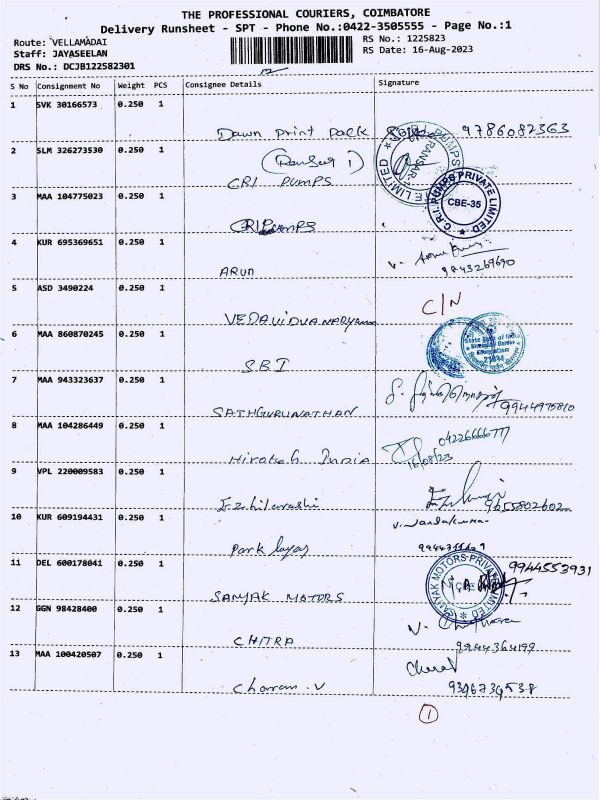 THE PROFESSIONAL COURIERS, COIMBATORE
Delivery Runsheet - SPT - Phone No.:0422-3505555 - Page No.:1
Route: VELLAMADAI
Staff: JAYASEELAN
DRS No.: DCJB122582301
RS No.: 1225823
RS Date: 16-Aug-2023
S No Consignment No Weight PCS Consignee Details Signature
1 SVK 30166573 0.250 1
Dawn Print Pack 9786082363
2 SLM 326273530 0.250 1
(Ransar 1)
CRI PUMPS
3 MAA 104775023 0.250 1
C.R.I. PUMPS PRIVATE LIMITED
CBE-35
CRI Pumps
4 KUR 695369651 0.250 1
Arun 9843269690
5 ASD 3490224 0.250 1
C/N
VEDAVIDYANARYANA
6 MAA 860870245 0.250 1
State Bank of India
SBI
7 MAA 943323637 0.250 1
SATHGURUNATHAN 9944975810
8 MAA 104286449 0.250 1
04226666777
Hirotech India 16/08/23
9 VPL 220009583 0.250 1
Ezhilarashi 9655802602
10 KUR 609194431 0.250 1
V. Nandakumar
Park layas
11 DEL 600178041 0.250 1
SANJAK MOTORS PRIVATE LIMITED
9944553931
SANJAK MOTORS
12 GGN 98428400 0.250 1
CHITRA 9944364199
13 MAA 100420507 0.250 1
Charan. V 9396734538
1